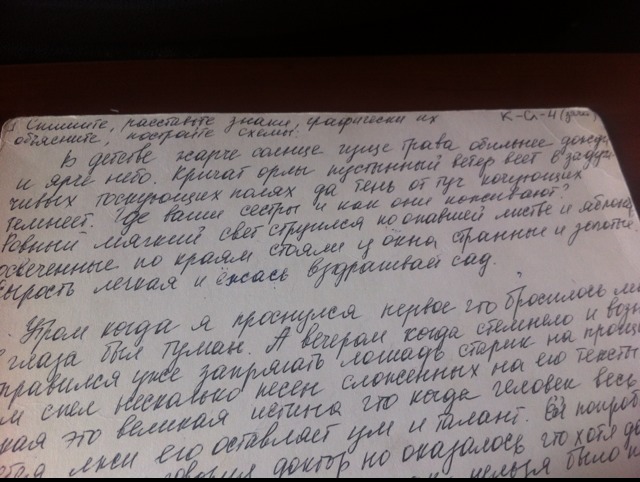 Спишите, расставьте знаки, графически их
объясните, постройте схемы.
В детстве жарче солнце гуще трава обильнее дожди
и ярче небо. Кричат орлы пустынный ветер веет в задум
чивых тоскующих полях да тень от туч кочующих
темнеет. Где ваши сестры и как они поживают?
Ровный мягкий свет струился по опавшей листве и яблоки
освеченные по краям стояли у окна странные и золотые.
Сырость легкая и ёжась вздрагивай сад.
Утром когда я проснулся первое что бросилось мне
в глаза был туман. А вечером когда стемнело и
правился уже запрягать лошадь старик на
м спел несколько песен сложенных на его тексты
кая это великая истина что когда человек весь
его оставляет ум и талант.
говорил доктор но оказалось что хотя
нельзя было